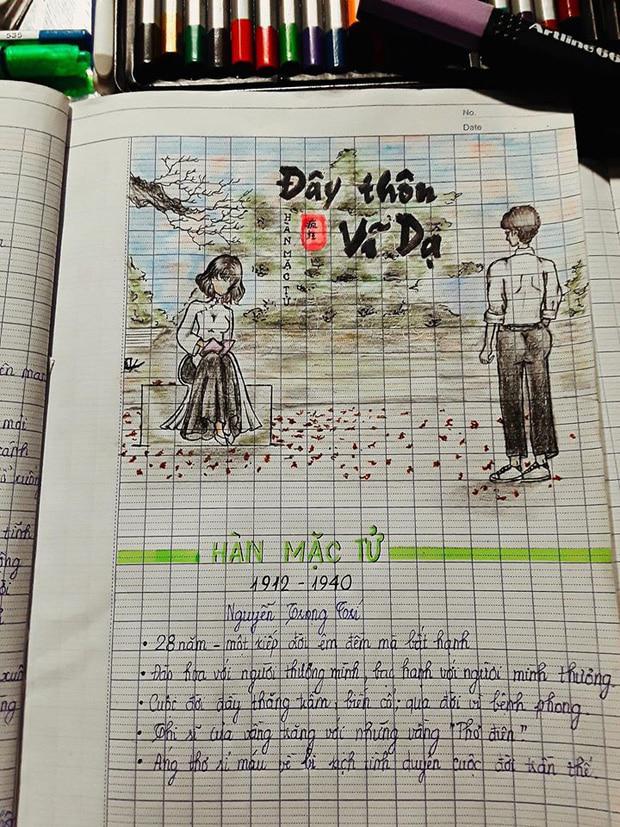 535
Artline 66
No.
Date
Đây thôn
Vĩ Dạ
HÀN MẶC TỬ
HÀN MẶC TỬ
1912 - 1940
Nguyễn Trọng Trí
• 28 năm - một kiếp đời êm đềm mà bất hạnh
• Đào hoa với người thương mình, bạc hạnh với người mình thương.
• Cuộc đời đầy thăng trầm, biến cố; qua đời vì bệnh phong.
• Thi sĩ của vầng trăng với những vầng "Thơ điên"
• Áng thơ sỉ máu về bi kịch tình duyên cuộc đời trần thế.